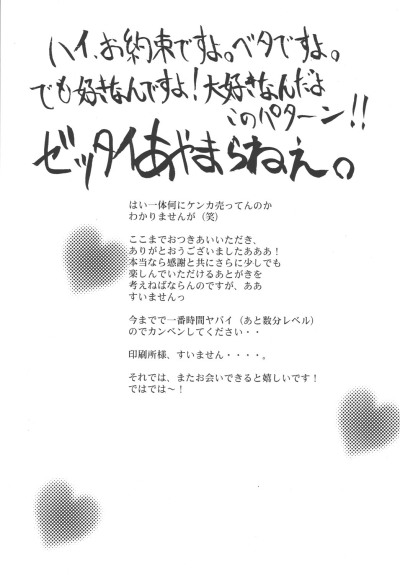 ハイ、お約束ですよ。ベタですよ。
でも好きなんですよ!大好きなんだよ
このパターン!!
ゼッタイあやまらねえ。
はい一体何にケンカ売ってんのか
わかりませんが(笑)
ここまでおつきあいいただき、
ありがとおうございましたあああ!
本当なら感謝と共にさらに少しでも
楽しんでいただけるあとがきを
考えねばならんのですが、ああ
すいませんっ
今までで一番時間ヤバイ(あと数分レベル)
のでカンベンしてください・・
印刷所様、すいません・・・・。
それでは、またお会いできると嬉しいです!
ではでは〜!